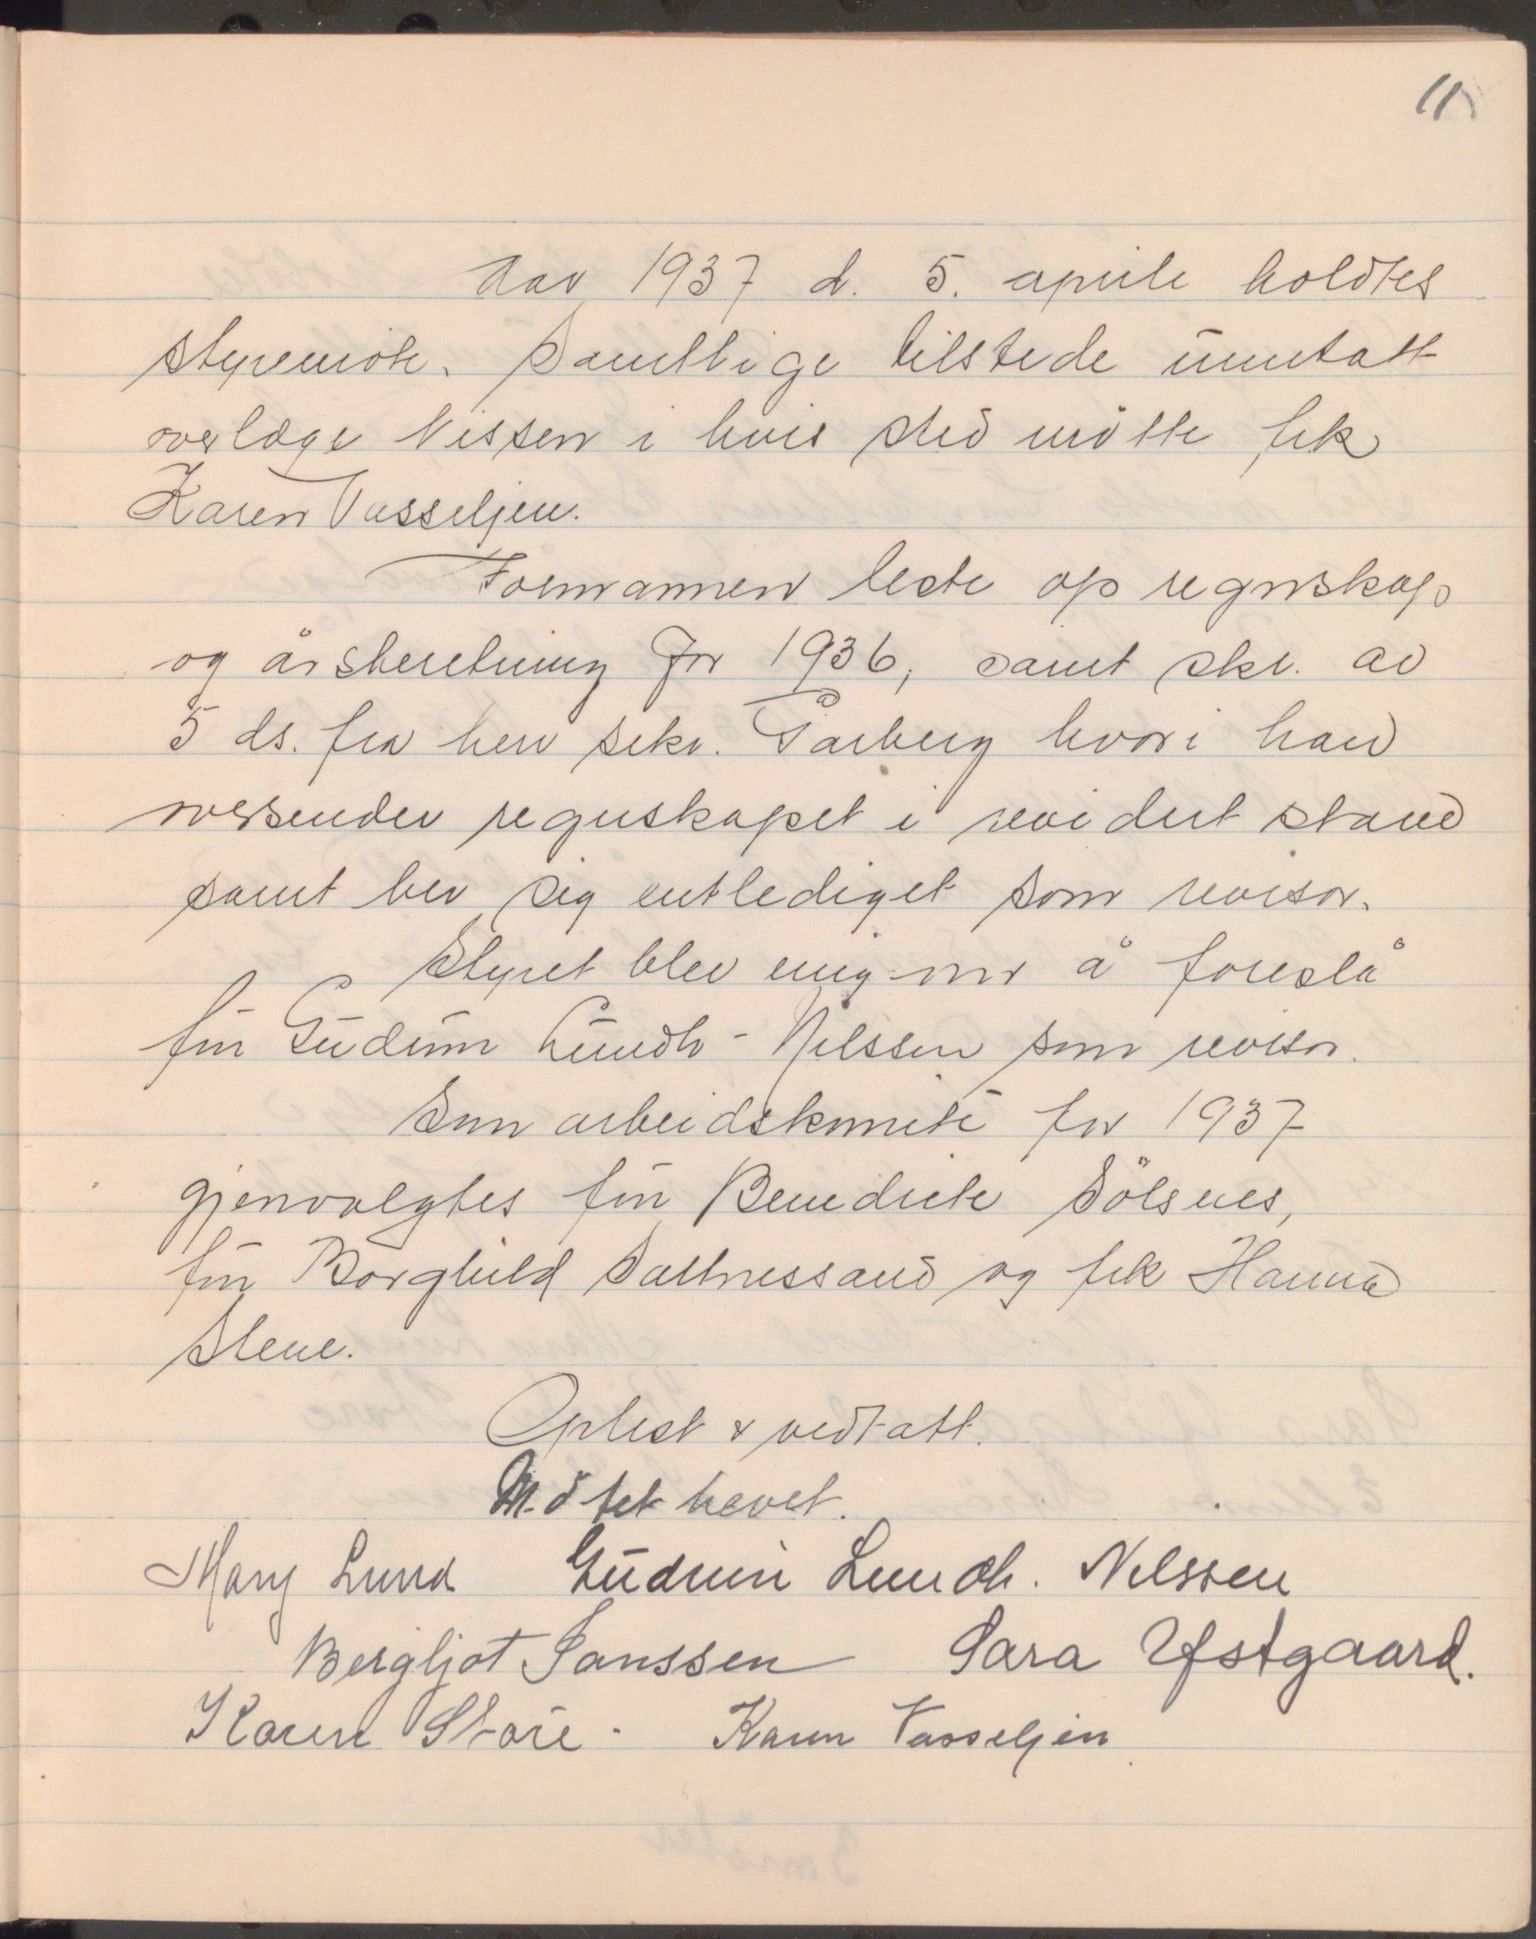 11
Aar 1937 d. 5. april holdtes
styremöte. Samtlige tilstede unntatt
overlæge Nissen i hvis sted mötte frk
Karen Vasseljen.
Formannen leste op regnskap
og årsberetning for 1936, samt skr. av
5 ds. fra herr sekr. Gårberg hvori han
oversender regnskapet i revidert stand
samt ber sig entlediget som revisor.
Styret blev enig om å foreslå
fru Gudrun Lundh-Nilssen som revisor.
Som arbeidskomité for 1937
gjenvalgtes fru Benedicte Sölsnes,
fru Borghild Saltnessand og frk Hanna
Stene.
Oplest & vedtatt.
Mötet hevet.
Mary Lund Gudrun Lundh. Nilssen
Bergljot Janssen Sara Ystgaard.
Karen Stare. Karen Vasseljen